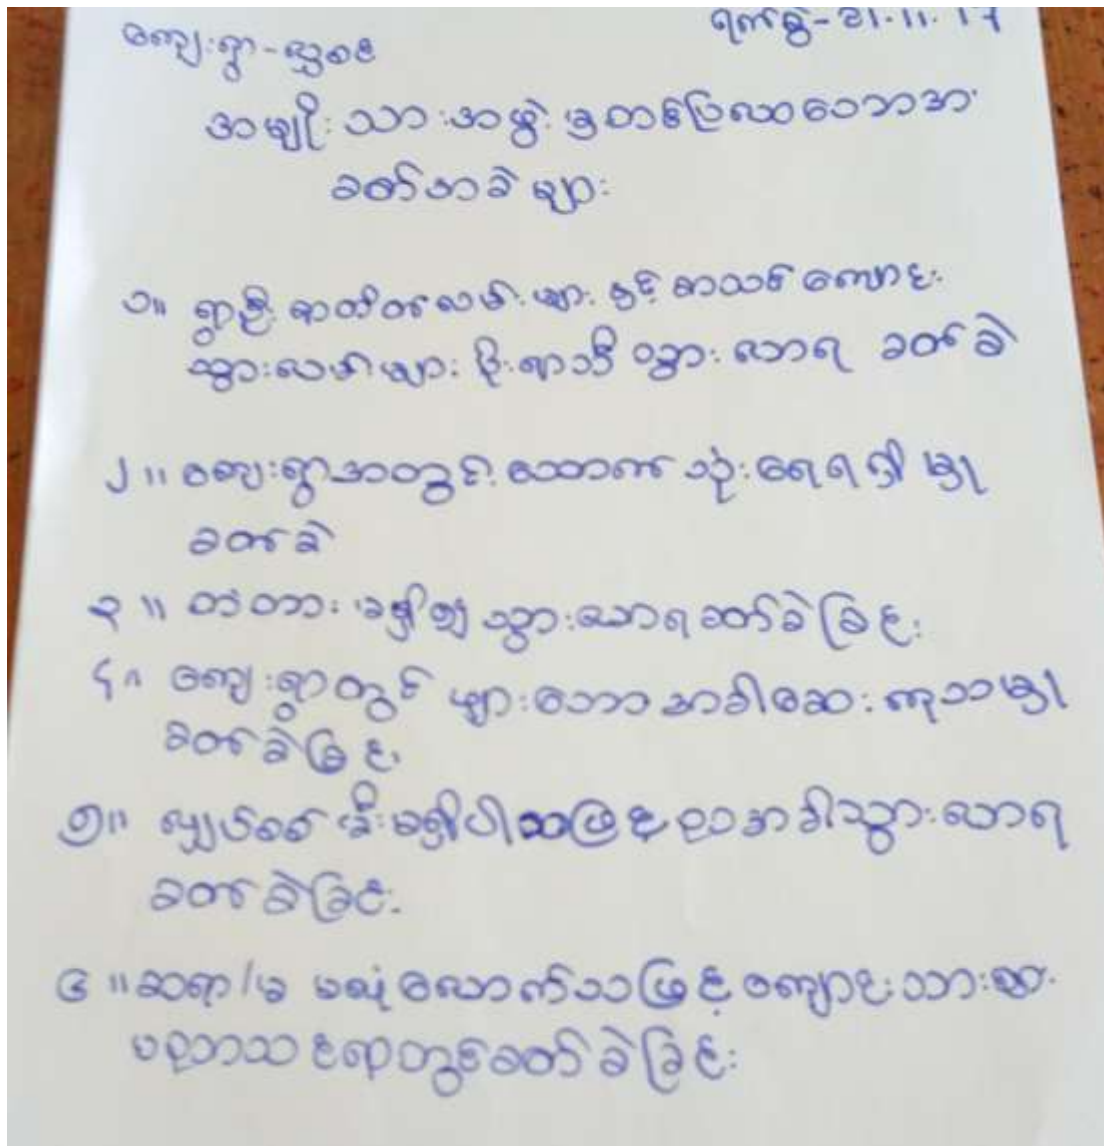 ကျေးရွာ-
ရက်စွဲ-21.11.17
အမျိုးသားအဖွဲ့မှတင်ပြလာသောအ
ခက်အခဲများ
၁။ ရွာဦး လမ်းများနှင့် စာသင်ကျောင်း
သွားလမ်းများ မိုးရာသီ သွားလာရ ခက်ခဲ
၂။ ကျေးရွာအတွင်း သောက်သုံးရေရရှိမှု
ခက်ခဲ
၃။ တံတား မရှိ၍ သွားလာရခက်ခဲခြင်း
၄။ ကျေးရွာတွင် ဖျားသောအခါဆေးကုသမှု
ခက်ခဲခြင်း
၅။ လျှပ်စစ်မီးမရှိပါသဖြင့် ညအခါသွားလာရ
ခက်ခဲခြင်း
၆။ ဆရာ/မ မလုံလောက်သဖြင့် ကျောင်းသားများ
ပညာသင်ရာတွင်ခက်ခဲခြင်း